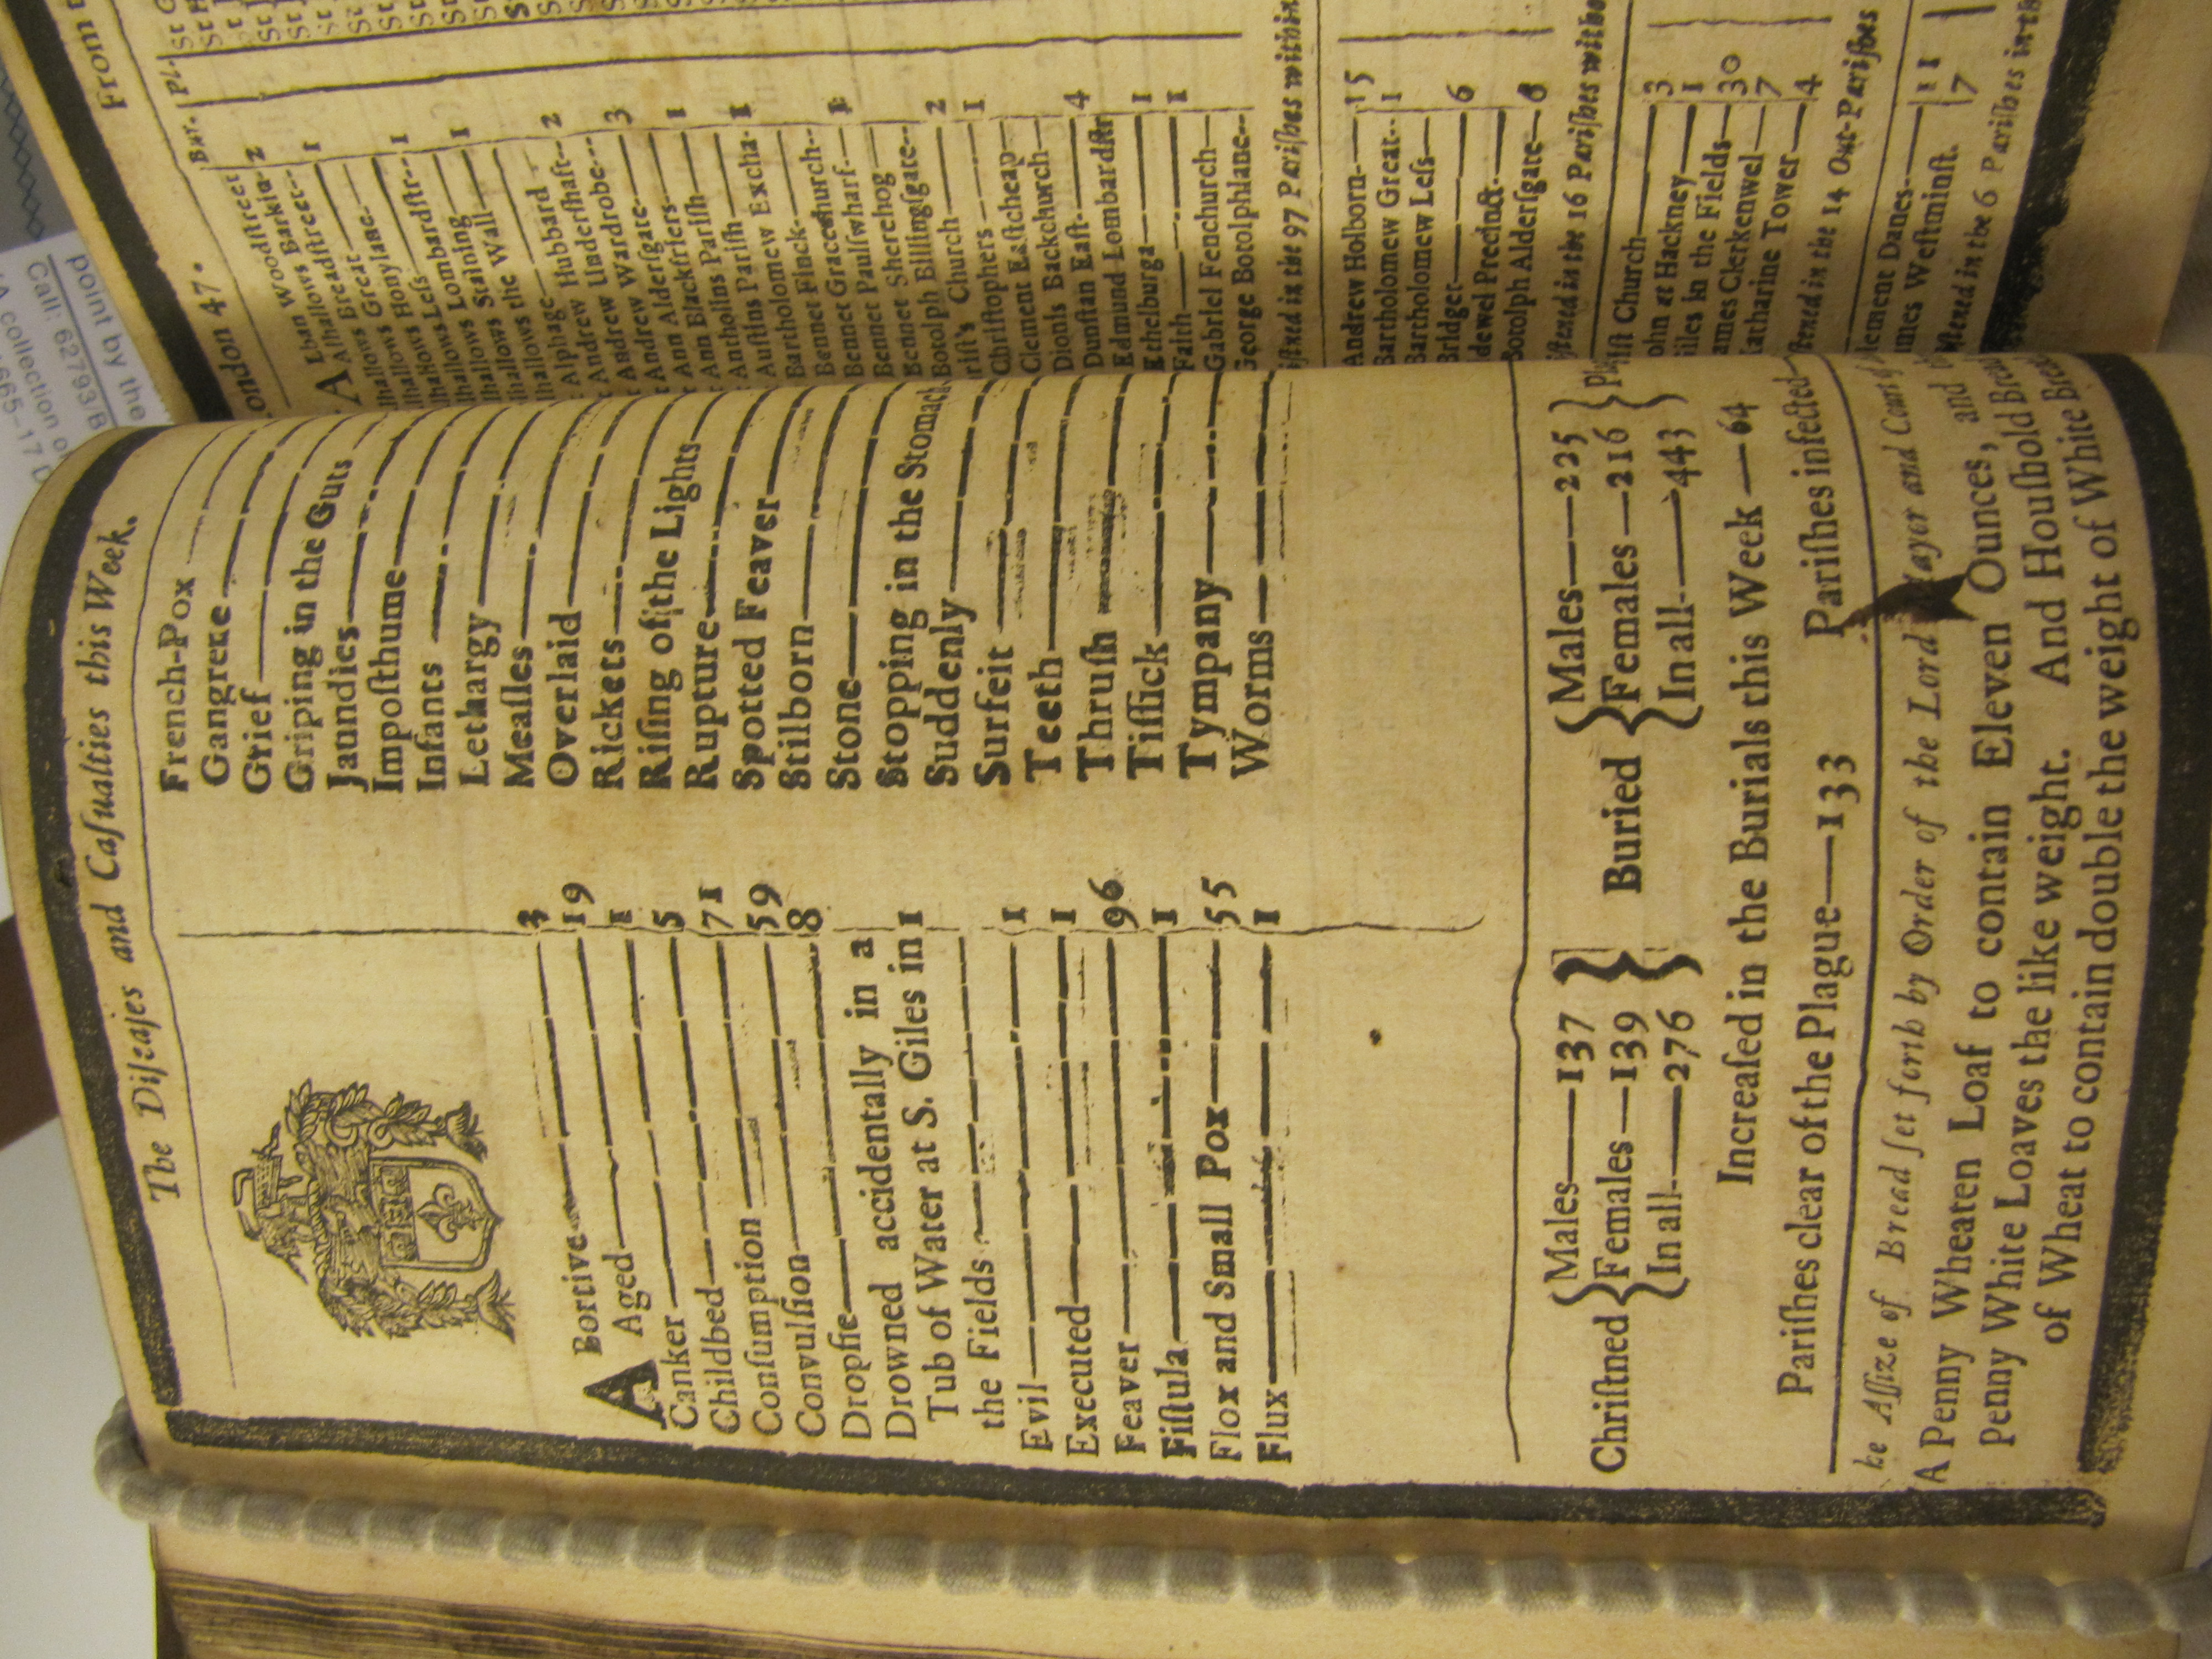 The Diseases and Casualties this Week.
ABortive 3
Aged 19
Canker 1
Childbed 5
Consumption 71
Convulsion 59
Dropsie 8
Drowned accidentally in a
Tub of Water at S. Giles in 1
the Fields
Evil 1
Executed 1
Feaver 96
Fistula 1
Flox and Small Pox 55
Flux 1
French-Pox
Gangrene
Grief
Griping in the Guts
Jaundies
Imposthume
Infants
Lethargy
Measles
Overlaid
Rickets
Rising of the Lights
Rupture
Spotted Feaver
Stilborn
Stone
Stopping in the Stomach
Suddenly
Surfeit
Teeth
Thrush
Tissick
Tympany
Worms
Christned { Males 137 } Buried { Males 225 }
{ Females 139 } { Females 216 }
{ In all 276 } { In all 443 }
Increased in the Burials this Week 64
Parishes clear of the Plague 133 Parishes infected
he Assize of Bread set forth by Order of the Lord Mayor and Court of
A Penny Wheaten Loaf to contain Eleven Ounces, and
Penny White Loaves the like weight. And Houshold Bread
of Wheat to contain double the weight of White Bread
ondon 47. From
Bur. Pl.
ALban Woodstreet 2
Alhallows Barkin
Alhallows Breadstreet 1
Alhallows Great
hallows Honylane
hallows Less 1
hallows Lombardstr
hallows Staining 1
hallows the Wall
Alphage
Andrew Hubbard 2
Andrew Undershaft
Andrew Wardrobe 3
Ann Aldersgate
Ann Blackfriers 1
Antholins Parish
Austins Parish 1
Bartholomew Excha
Bennet Finck
Bennet Gracechurch 1
Bennet Paulswharf
Bennet Sherehog
Botolph Billingsgate 2
rist's Church 1
Christophers
Clement Eastcheap
Dionis Backchurch
Dunstan East 4
Edmund Lombardstr
Ethelburga 1
Faith 1
Gabriel Fenchurch
George Botolphlane
istned in the 97 Parishes within
Andrew Holborn 15
Bartholomew Great 1
Bartholomew Less
Bridget 6
idewel Precinct
Botolph Aldersgate
istned in the 16 Parishes witho
ist Church 3
ohn at Hackney 1
iles in the Fields 30
ames Clerkenwel 7
Katharine Tower 4
stned in the 14 Out-Parishes
lement Danes 11
ames Westminst. 7
stned in the 6 Parishes in th
point by the
Call: 62793/B
A collection o